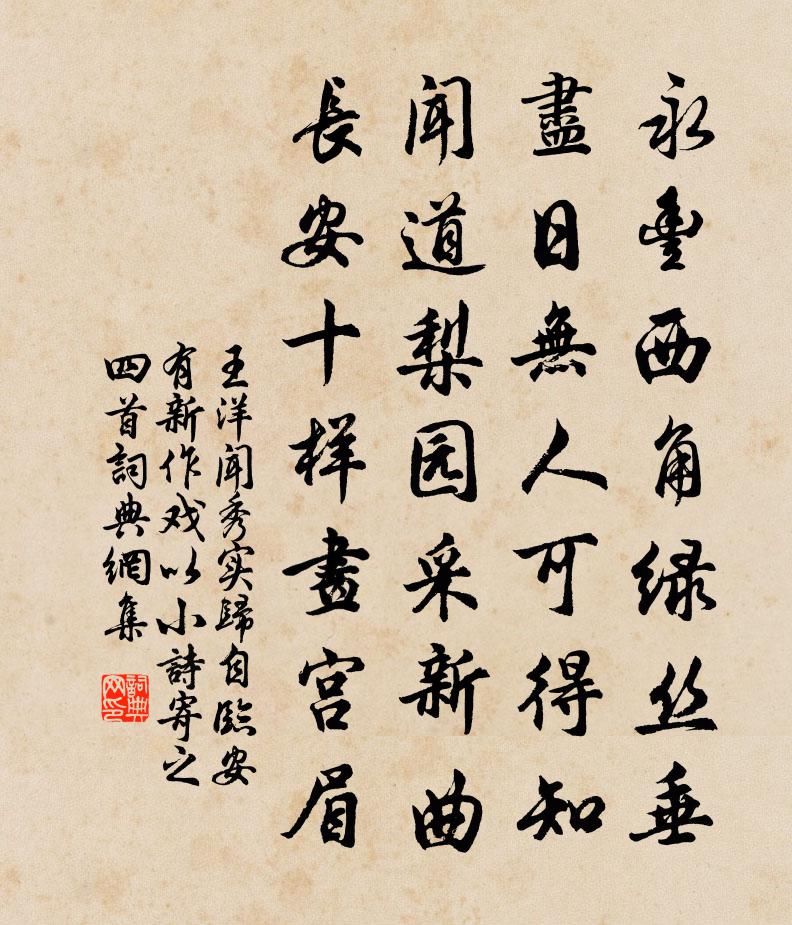 永豐西角绿丝垂
盡日無人可得知
聞道梨园采新曲
長安十样畫宫眉
王洋闻秀实歸自臨安
有新作戏以小詩寄之
四首詞典網集
詞典
网印